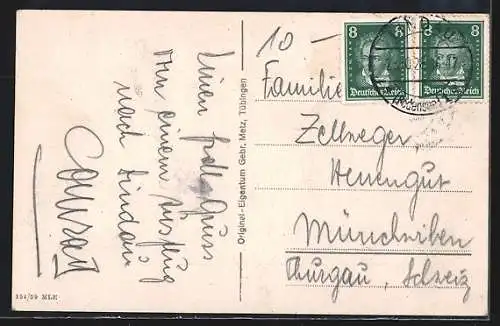 Einen frohen Gruss
von einem Ausflug
nach Lindau
Conrad
354/59 MLE
Original-Eigentum Gebr. Metz, Tübingen
10 –
8 8
Deutsches Reich
8 8
Deutsches Reich
(Bodensee)
Familie
Zellweger
Neuengut
Münchwilen
Thurgau, Schweiz